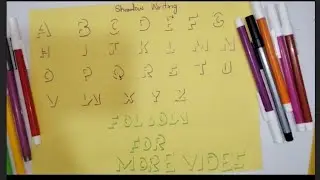 Shadow Writing
A B C D E F G
H I J K L M N
O P Q R S T U
V W X Y Z
FOLLOW
FOR
MORE VIDES